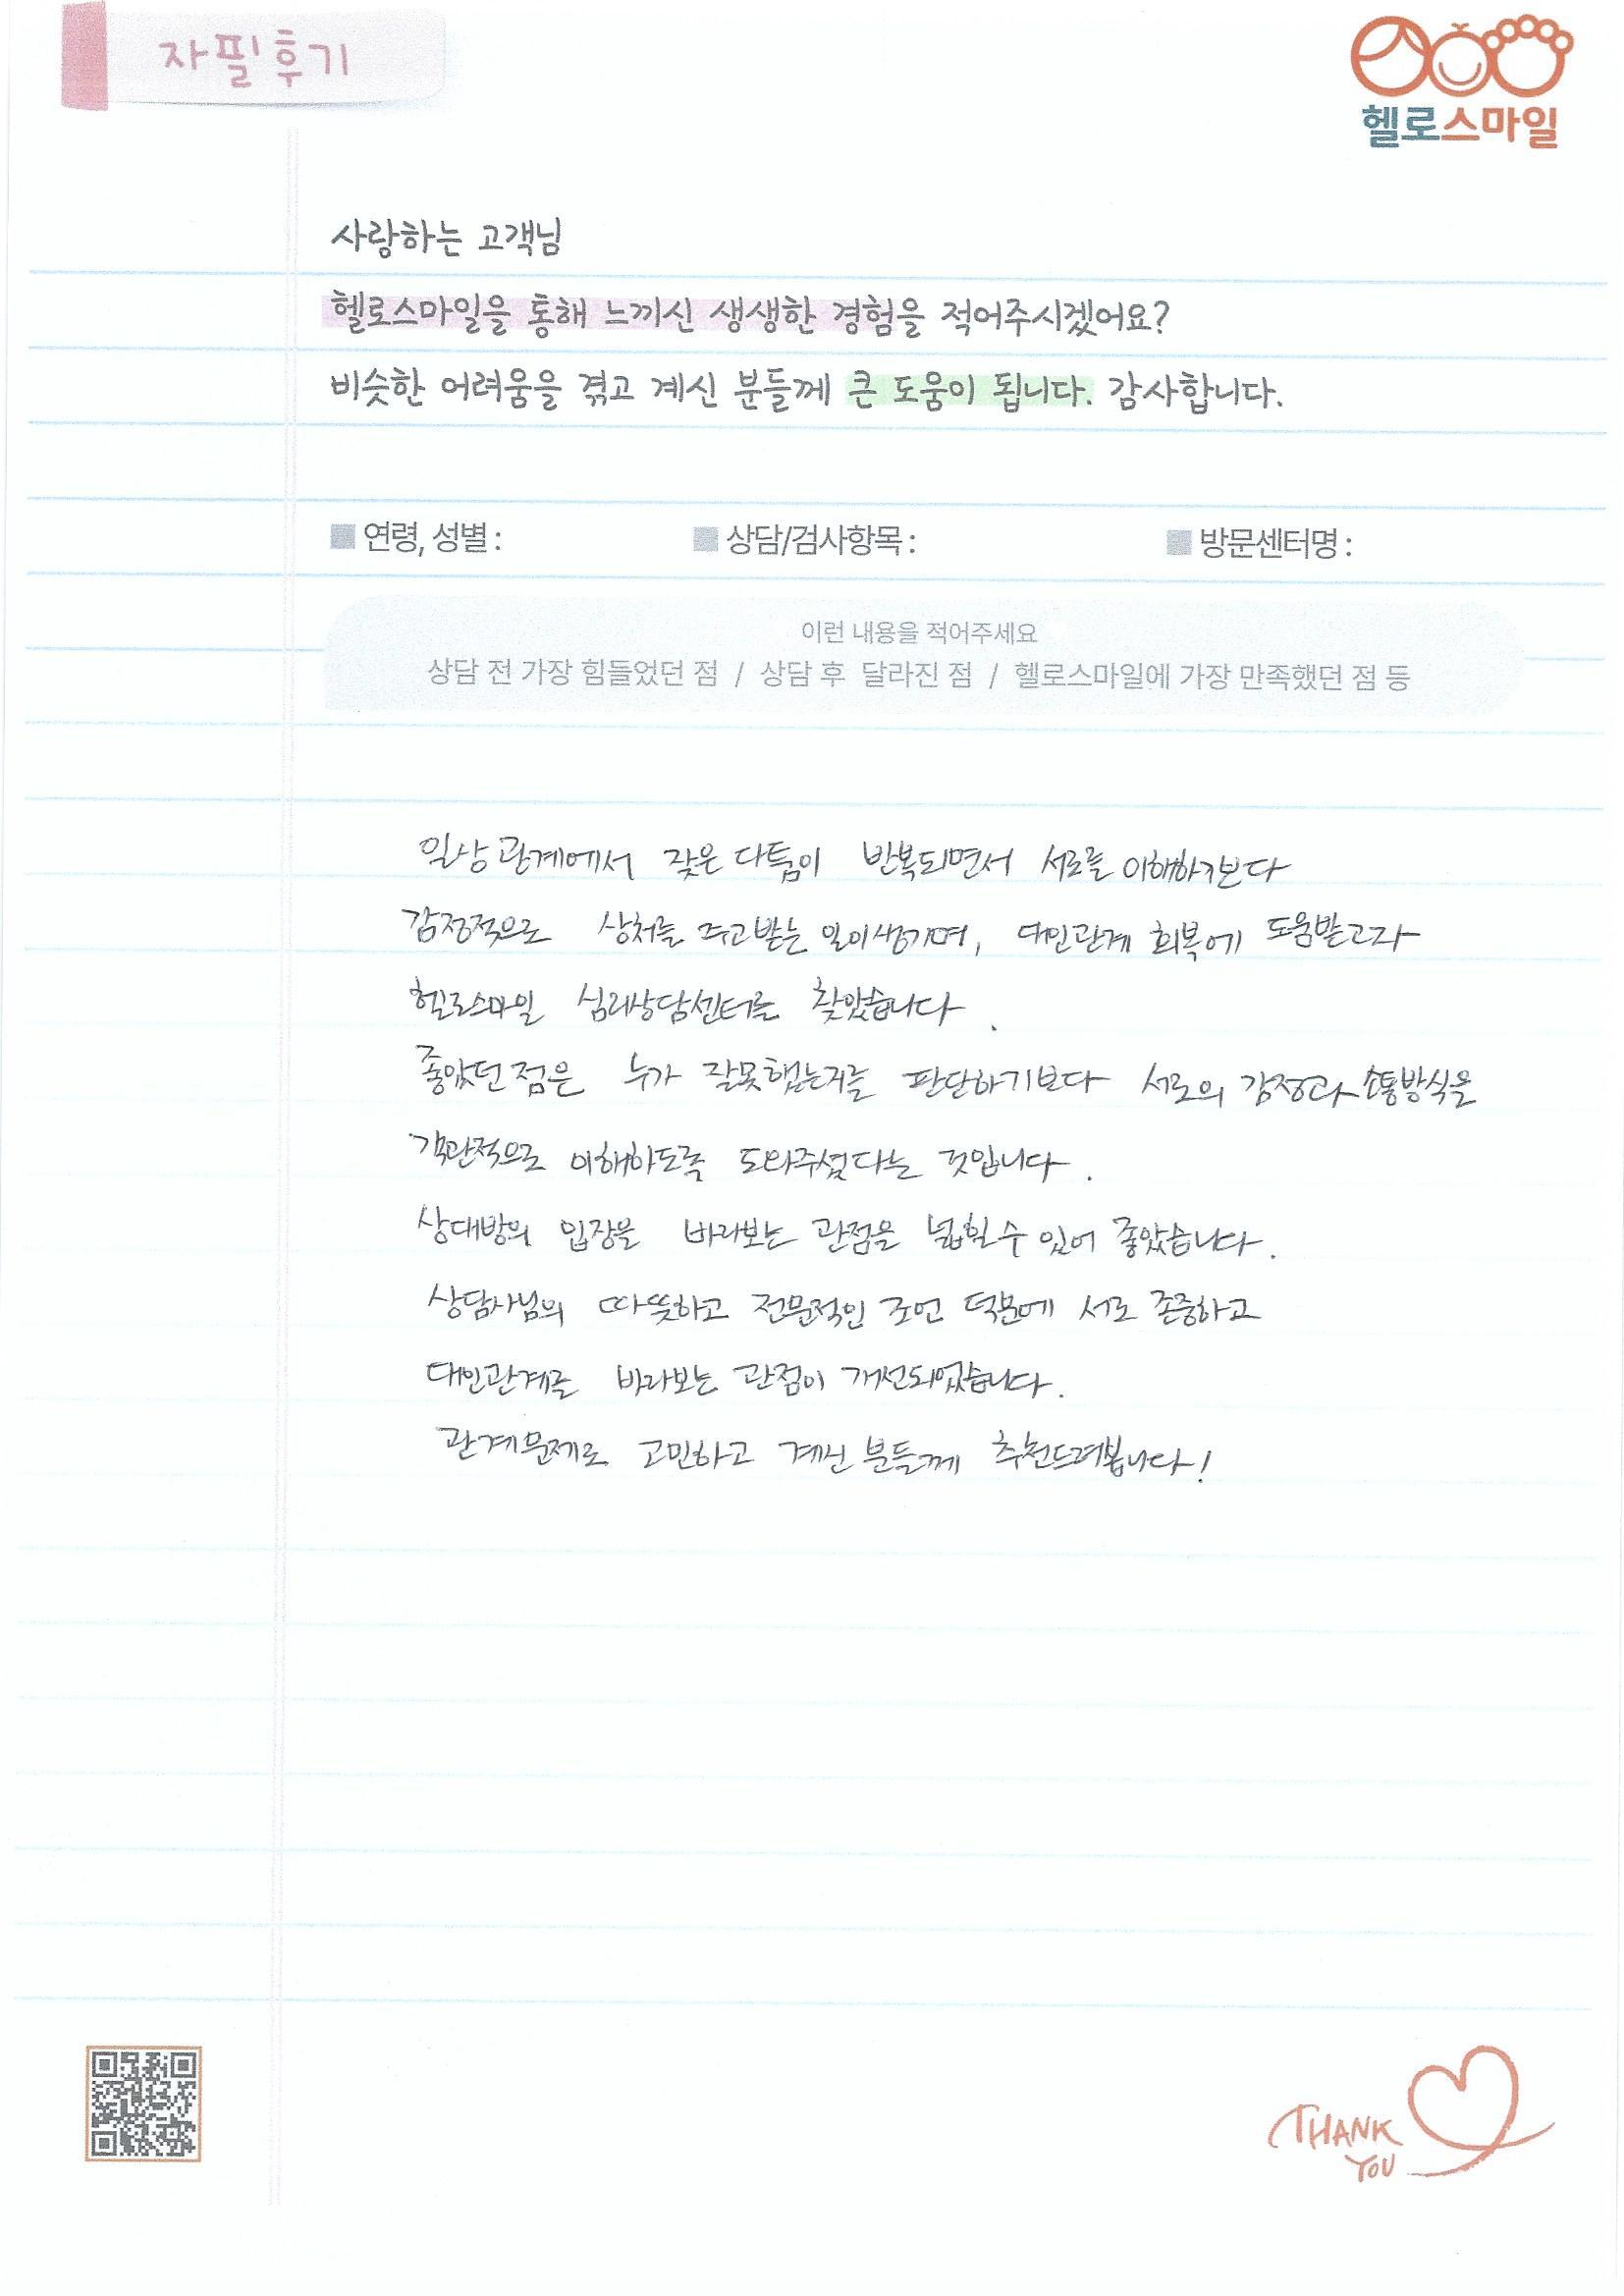 자필후기
헬로스마일
사랑하는 고객님
헬로스마일을 통해 느끼신 생생한 경험을 적어주시겠어요?
비슷한 어려움을 겪고 계신 분들께 큰 도움이 됩니다. 감사합니다.
연령, 성별 : 상담/검사항목 : 방문센터명 :
이런 내용을 적어주세요
상담 전 가장 힘들었던 점 / 상담 후 달라진 점 / 헬로스마일에 가장 만족했던 점 등
일상 관계에서 잦은 다툼이 반복되면서 서로를 이해하기보다
감정적으로 상처를 주고받는 일이 생기며, 대인관계 회복에 도움받고자
헬로스마일 심리상담센터를 찾았습니다.
좋았던 점은 누가 잘못했는지를 판단하기보다 서로의 감정과 소통방식을
객관적으로 이해하도록 도와주셨다는 것입니다.
상대방의 입장을 바라보는 관점을 넓힐 수 있어 좋았습니다.
상담사님의 따뜻하고 전문적인 조언 덕분에 서로 존중하고
대인관계를 바라보는 관점이 개선되었습니다.
관계문제로 고민하고 계신 분들께 추천드려봅니다!
THANK
YOU